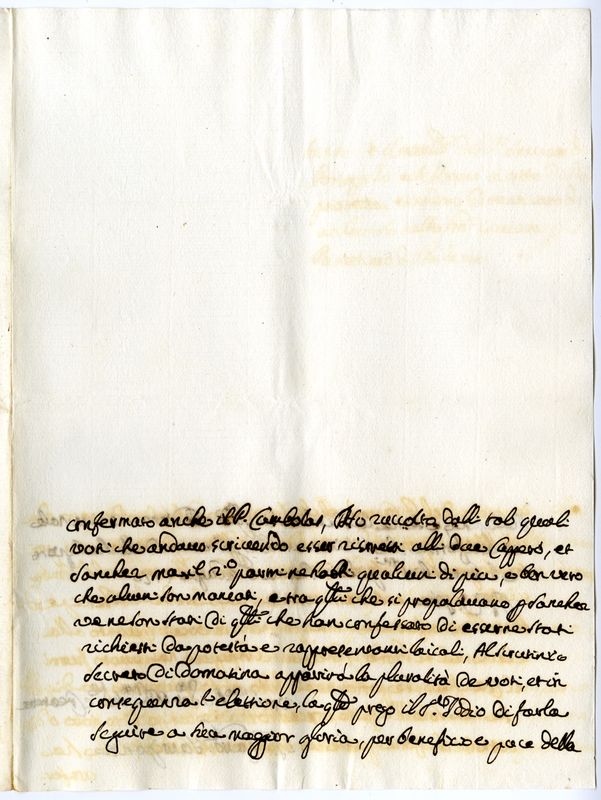 confermato anche il P. Carbolas, Ho raccolto dalli tali quali
voti che andavo scrivendo esser ristretti alli due Cappero, et
Sanchez ma il 2.º parmi ne habbi qualcun di piu, e ben vero
che alcuni son mancati, e tra qlli che si propalavano p Sanchez
ve ne son stati di qlli che han confessato di esserne stati
richiesti da potestà e rappresentanti laicali, Al scrutinio
secreto di domatina apparirà la pluralità de voti, et in
consequenza l'elettione, la qle prego il S. Iddio di farla
seguire a sua maggior gloria, per beneficio e pace della